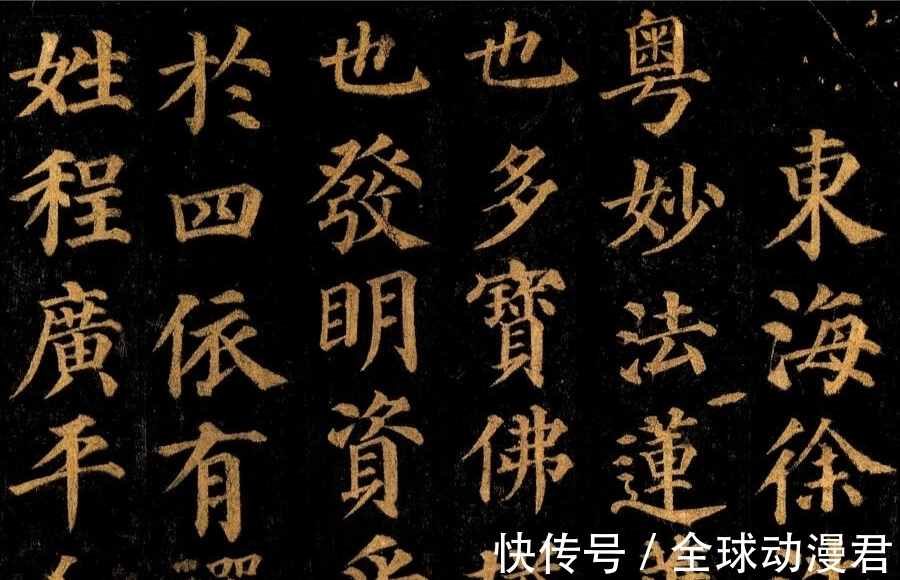 東海徐
粤妙法蓮
也多寶佛
也發明資
於四依有
姓程廣平
快传号 / 全球动漫君